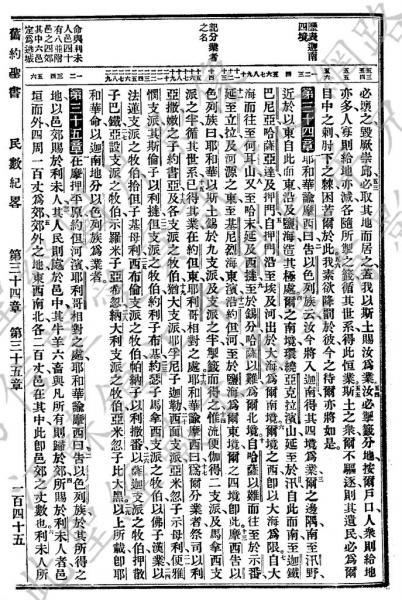 歷表迦南
四境
記分業者
之名
必壞之毀厥崇邱必取其地而居之蓋我以斯土賜汝爲業汝必掣籤分地按爾戶口人衆則給地
亦多人寡則給地亦減各隨所掣之籤循其世系得此恒業斯土之衆爾不驅逐則其遺民必爲爾
目中之刺肘下之棘困苦爾於此我素欲降罰於彼今之待爾亦將如是
第三十四章耶和華諭摩西曰告以色列族云汝今將入迦南得其四境爲業爾之邊隅南至汛野
近於以東自此而東沿及鹽海涯其極處爾之南境環繞亞克拉濱山延至於汛自此而南至迦鐵
巴尼亞哈薩亞達及押門自押門沿至埃及河出於大海爲爾南境爾境之西卽以大海爲限自大
海而往至何耳山又至哈末延及西撻至於錫分哈薩以難爲爾北境自哈薩以難而往至於示番
延至立拉及河源之東至基尼烈海東濱沿約但河至於鹽海爲爾東境爾之四境卽此摩西告以
色列族曰耶和華以斯土錫於九支派及支派之半掣籤而得之惟流便伽得二支派及馬拿西支
派之半循其世系已得其業在約但東耶利哥相對之處耶和華諭摩西曰爲爾分業者祭司以利
亞撒嫩之子約書亞及各支派之牧伯猶大支派耶孚尼子迦勒西面支派亞米忽子示母利便雅
憫支派其斯倫子以利撻但支派之牧伯約利子布基約瑟子馬拿西支派之牧伯以佛子漢業以
法蓮支派之牧伯拾但子基母利西布倫支派之牧伯帕納子以利撒番以薩迦支派之牧伯押散
子巴鐵亞設支派之牧伯示羅米子亞希忽納大利支派之牧伯亞米忽子比大黑以上所載卽耶
和華命以迦南地分以色列族爲業者
第三十五章在摩押平原約但河濱耶利哥相對之處耶和華諭摩西曰告以色列族於其所得之
地以邑居利未人其人民則處於邑中其牛羊六畜與凡所有則歸於郊所賜於利未人者邑
垣而外四周一百丈爲郊郊外之地東西南北各二百丈邑在其中此卽邑郊之丈數也利未人所
命與利未
人邑四十
有八並附
邑之四郊
其中六邑
定爲逃城
舊約聖書 民數紀畧 第三十四章 第三十五章 一百四十五